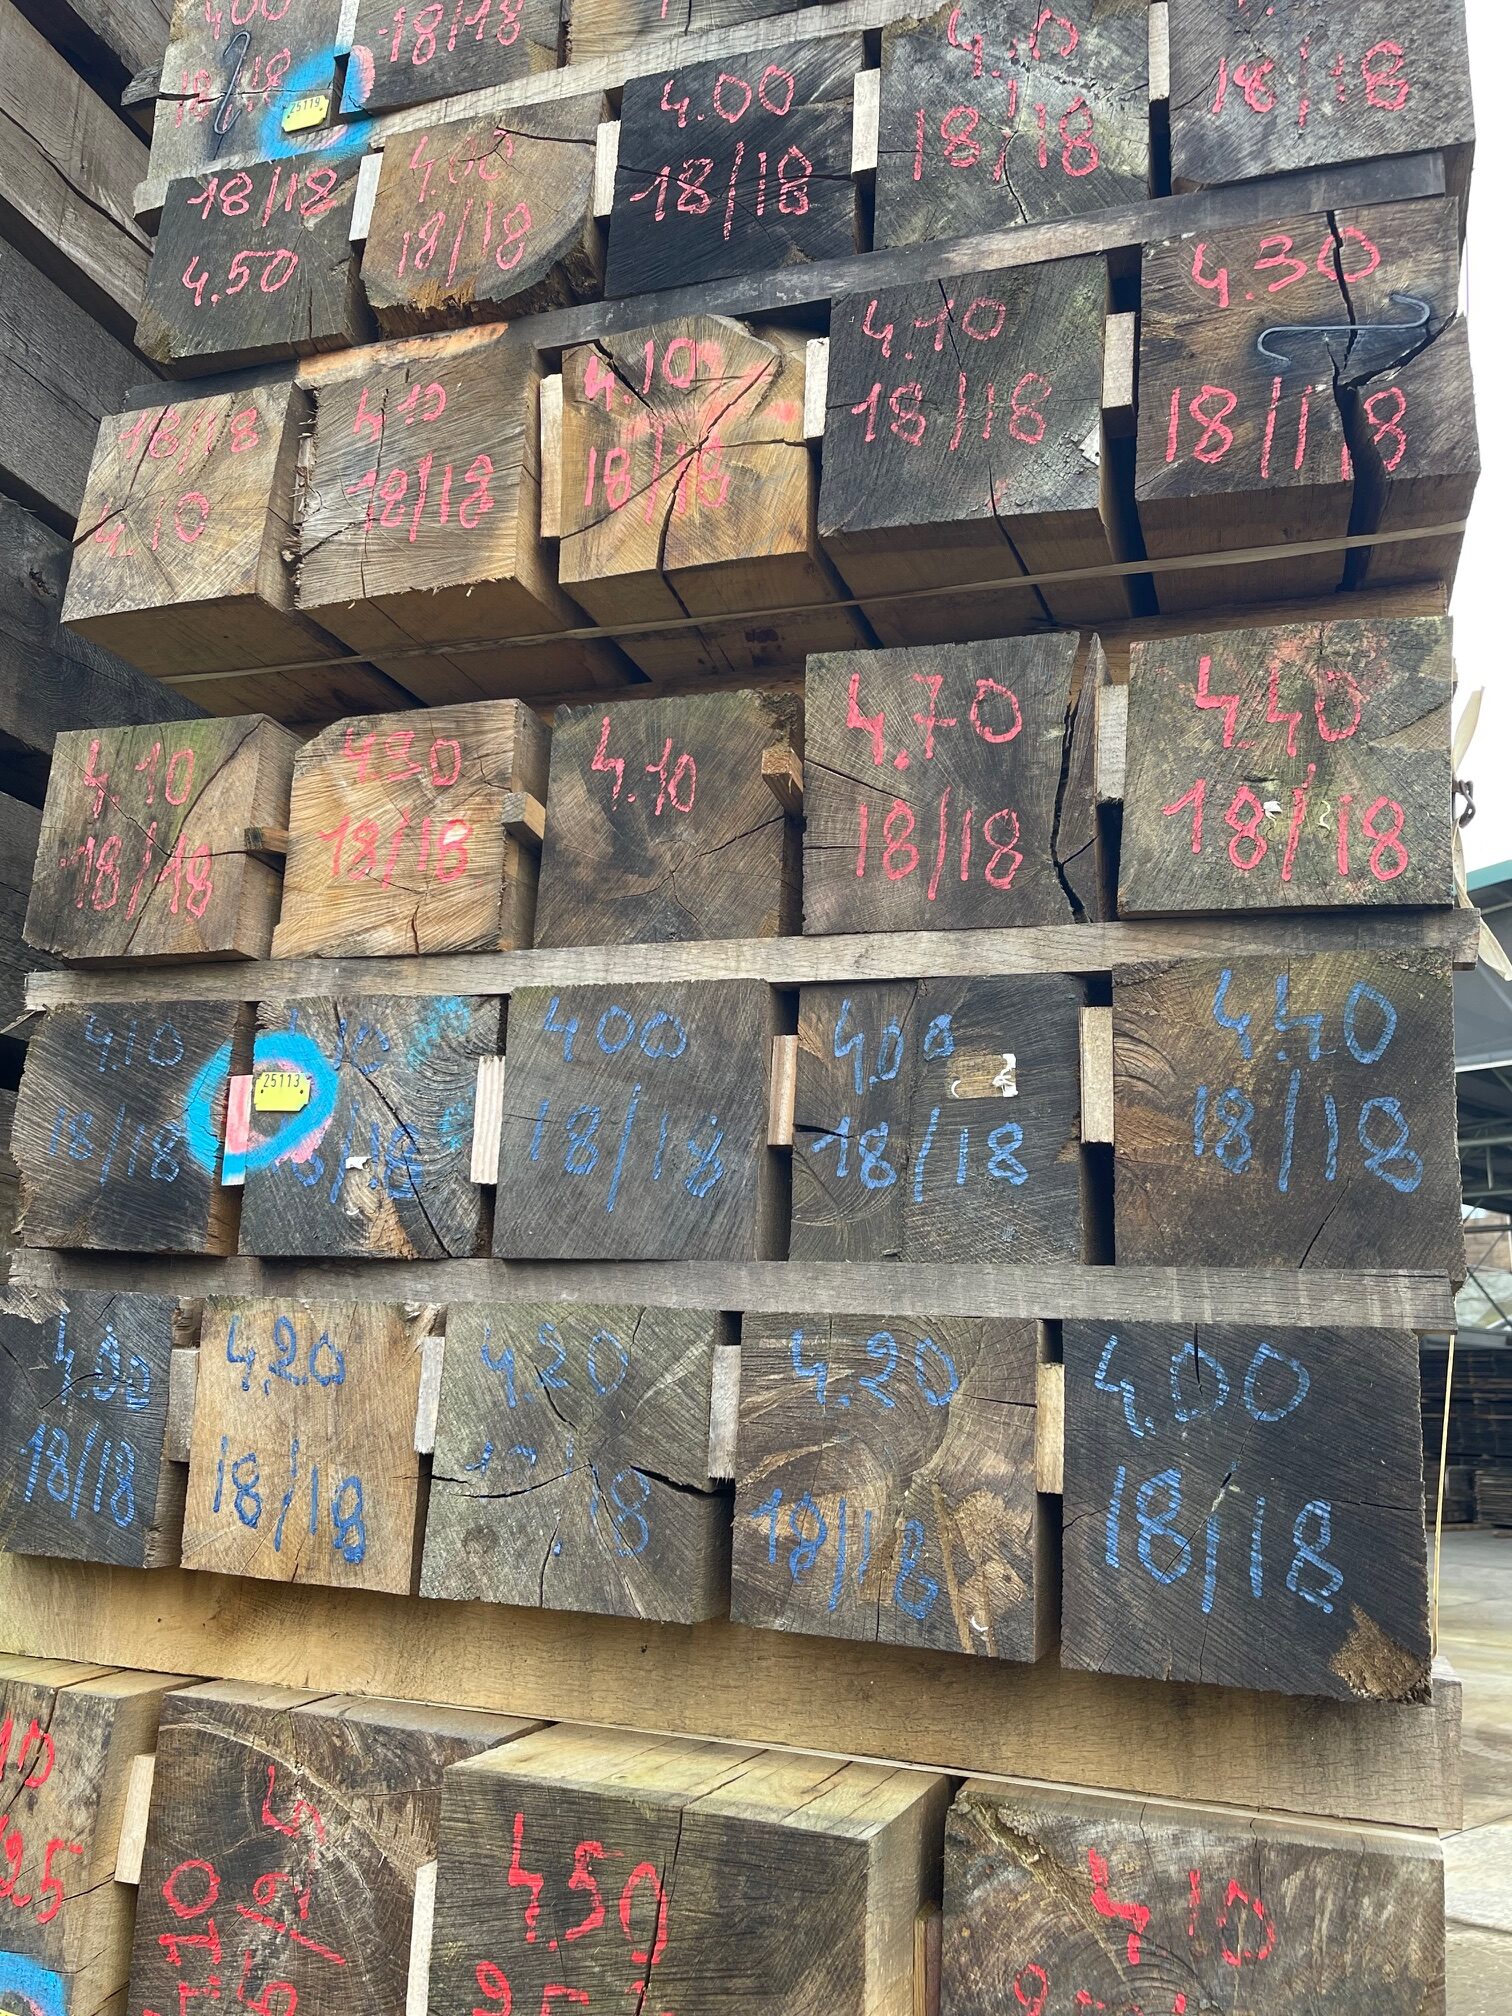 4.00
18/18
25119
18/18
18/18
4.50
4.00
18/18
4.00
18/18
4.10
18/18
18/18
18/18
4.10
4.10
18/18
4.10
18/18
4.10
18/18
4.30
18/18
4.10
18/18
18/18
4.10
4.70
18/18
4.40
18/18
4.10
18/18
25113
18/18
4.00
18/18
4.00
18/18
4.40
18/18
4.00
18/18
4,20
18/18
4.20
18
4.20
18/18
4.00
18/18
10
25
4.50
4.10